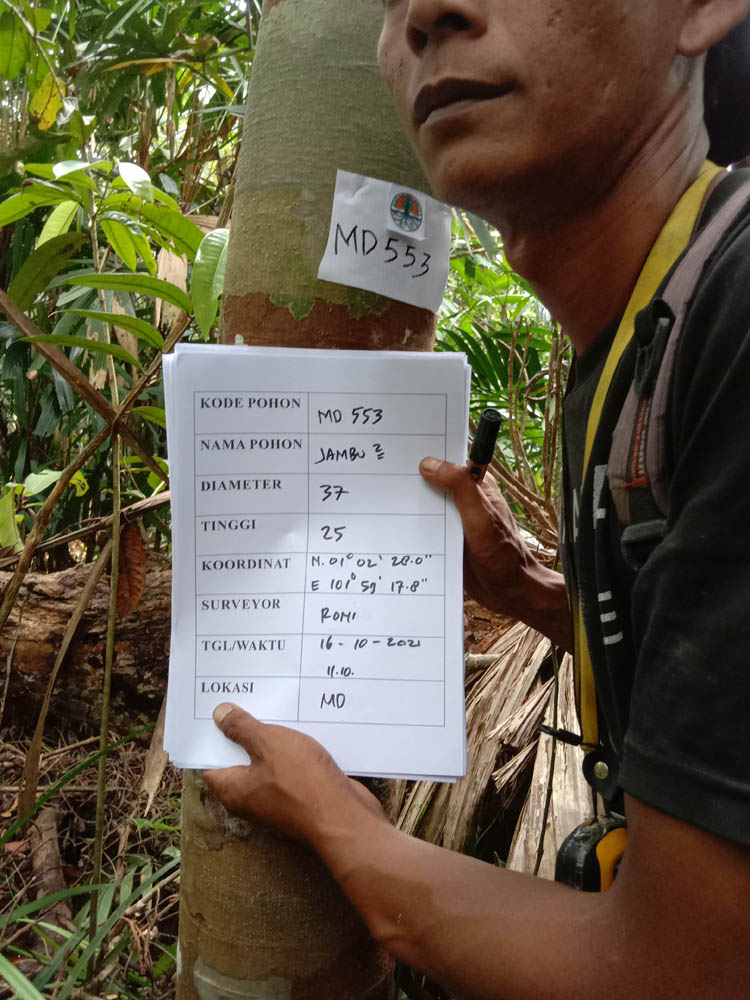 MD 553
KODE POHON MD 553
NAMA POHON JAMBU 2
DIAMETER 37
TINGGI 25
KOORDINAT N. 01° 02' 28.0"
E 101° 59' 17.8"
SURVEYOR ROMI
TGL/WAKTU 16-10-2021
11.10.
LOKASI MD